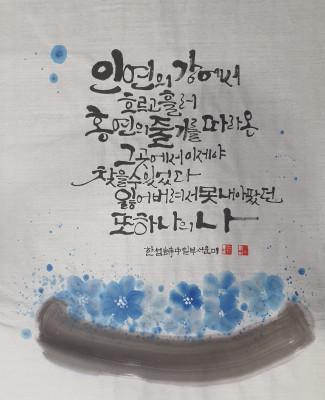 인연의 강에서
흐르고 흘러
홍연의 줄기를 따라온
그곳에서 이제야
찾을 수 있었다
잃어버려서 못내 아팠던
또 하나의 나